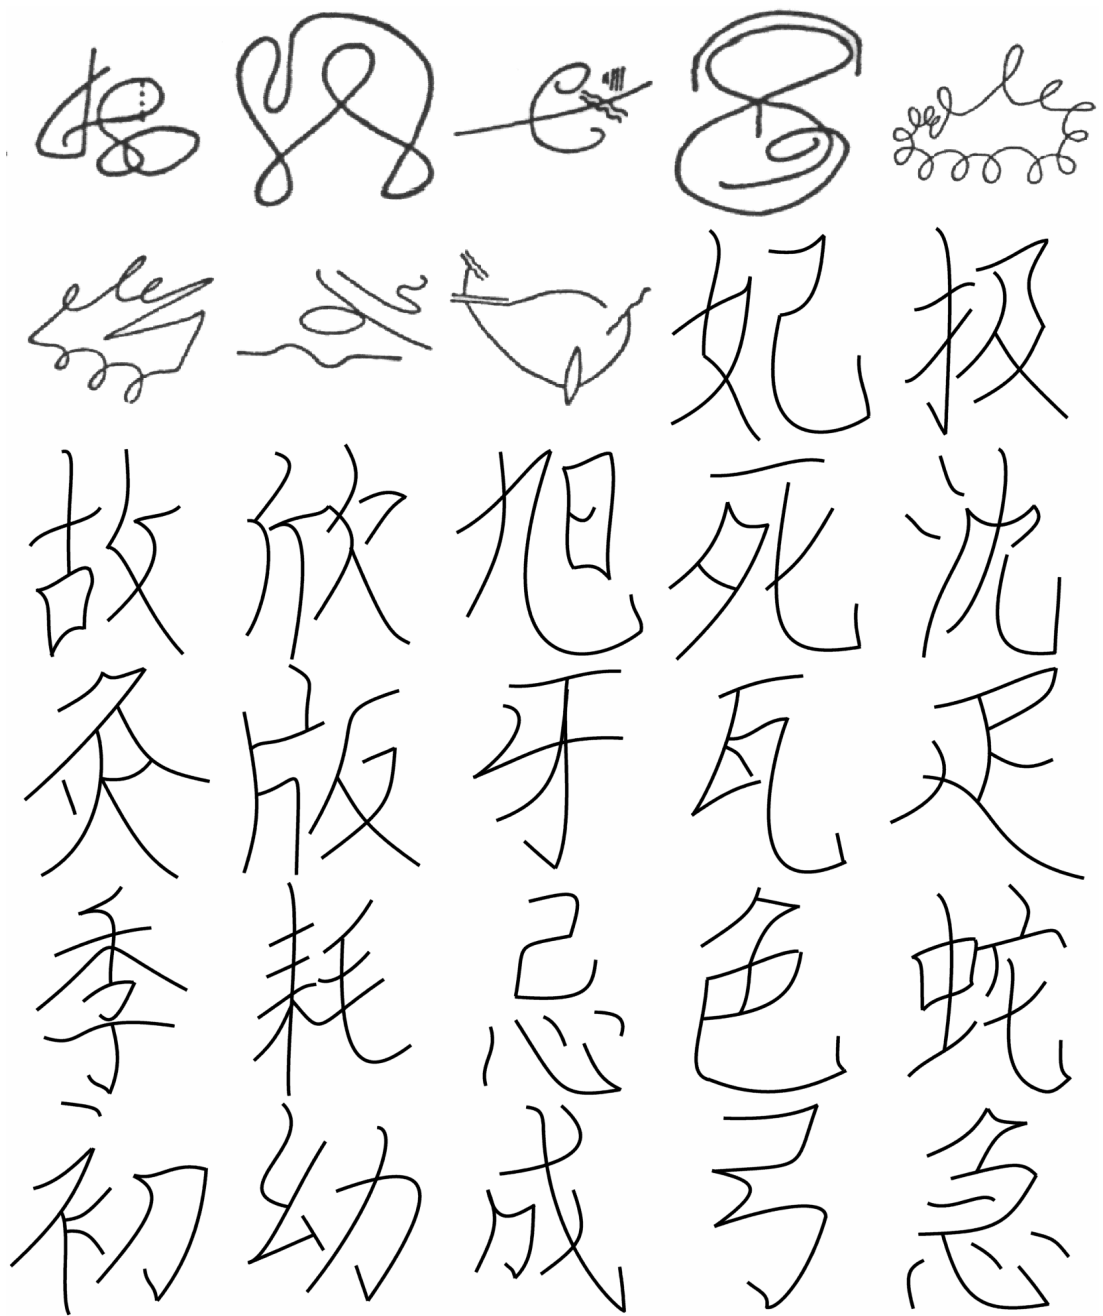 妃 扱
故 欣 旭 死 沈
灸 版 牙 瓦 疋
季 耗 忌 色 蛇
初 幼 成 弓 急